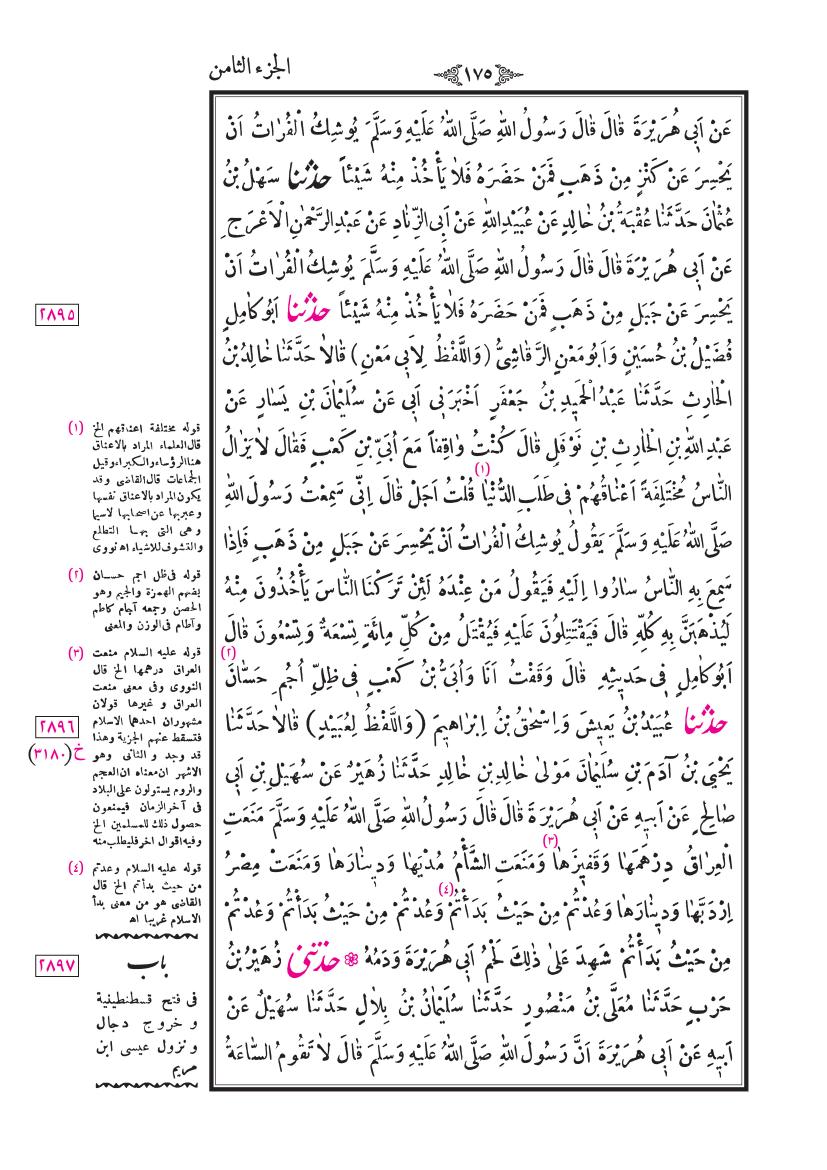 الجزء الثامن
١٧٥
عَنْ اَبِى هُرَيْرَةَ قَالَ قَالَ رَسُولُ اللهِ صَلَّى اللهُ عَلَيْهِ وَسَلَّمَ يُوشِكُ الْفُرَاتُ اَنْ
يَحْسِرَ عَنْ كَنْزٍ مِنْ ذَهَبٍ فَمَنْ حَضَرَهُ فَلَا يَأْخُذْ مِنْهُ شَيْئاً حَدَّثَنَا سَهْلُ بْنُ
عُثْمَانَ حَدَّثَنَا عُقْبَةُ بْنُ خَالِدٍ عَنْ عُبَيْدِ اللهِ عَنْ اَبِى الزِّنَادِ عَنْ عَبْدِ الرَّحْمٰنِ الْاَعْرَجِ
عَنْ اَبِى هُرَيْرَةَ قَالَ قَالَ رَسُولُ اللهِ صَلَّى اللهُ عَلَيْهِ وَسَلَّمَ يُوشِكُ الْفُرَاتُ اَنْ
يَحْسِرَ عَنْ جَبَلٍ مِنْ ذَهَبٍ فَمَنْ حَضَرَهُ فَلَا يَأْخُذْ مِنْهُ شَيْئاً حَدَّثَنَا اَبُو كَامِلٍ
فُضَيْلُ بْنُ حُسَيْنٍ وَاَبُو مَعْنٍ الرَّقَاشِىُّ (وَاللَّفْظُ لِاَبِى مَعْنٍ) قَالَا حَدَّثَنَا خَالِدُ بْنُ
الْحَارِثِ حَدَّثَنَا عَبْدُ الْحَمِيدِ بْنُ جَعْفَرٍ اَخْبَرَنِى اَبِى عَنْ سُلَيْمَانَ بْنِ يَسَارٍ عَنْ
عَبْدِ اللهِ بْنِ الْحَارِثِ بْنِ نَوْفَلٍ قَالَ كُنْتُ وَاقِفاً مَعَ اُبَىِّ بْنِ كَعْبٍ فَقَالَ لَا يَزَالُ
النَّاسُ مُخْتَلِفَةً اَعْنَاقُهُمْ فِى طَلَبِ الدُّنْيَا (١) قُلْتُ اَجَلْ قَالَ اِنِّى سَمِعْتُ رَسُولَ اللهِ
صَلَّى اللهُ عَلَيْهِ وَسَلَّمَ يَقُولُ يُوشِكُ الْفُرَاتُ اَنْ يَحْسِرَ عَنْ جَبَلٍ مِنْ ذَهَبٍ فَاِذَا
سَمِعَ بِهِ النَّاسُ سَارُوا اِلَيْهِ فَيَقُولُ مَنْ عِنْدَهُ لَئِنْ تَرَكْنَا النَّاسَ يَأْخُذُونَ مِنْهُ
لَيُذْهَبَنَّ بِهِ كُلِّهِ قَالَ فَيَقْتَتِلُونَ عَلَيْهِ فَيُقْتَلُ مِنْ كُلِّ مِائَةٍ تِسْعَةٌ وَتِسْعُونَ قَالَ
اَبُو كَامِلٍ فِى حَدِيثِهِ قَالَ وَقَفْتُ اَنَا وَاُبَىُّ بْنُ كَعْبٍ فِى ظِلِّ اُجُمِ حَسَّانَ (٢)
حَدَّثَنَا عُبَيْدُ بْنُ يَعِيشَ وَاِسْحٰقُ بْنُ اِبْرَاهِيمَ (وَاللَّفْظُ لِعُبَيْدٍ) قَالَا حَدَّثَنَا
يَحْيَى بْنُ آدَمَ بْنِ سُلَيْمَانَ مَوْلَى خَالِدِ بْنِ خَالِدٍ حَدَّثَنَا زُهَيْرٌ عَنْ سُهَيْلِ بْنِ اَبِى
صَالِحٍ عَنْ اَبِيهِ عَنْ اَبِى هُرَيْرَةَ قَالَ قَالَ رَسُولُ اللهِ صَلَّى اللهُ عَلَيْهِ وَسَلَّمَ مَنَعَتِ
الْعِرَاقُ دِرْهَمَهَا وَقَفِيزَهَا (٣) وَمَنَعَتِ الشَّأْمُ مُدْيَهَا وَدِينَارَهَا وَمَنَعَتْ مِصْرُ
اِرْدَبَّهَا وَدِينَارَهَا وَعُدْتُمْ مِنْ حَيْثُ بَدَأْتُمْ (٤) وَعُدْتُمْ مِنْ حَيْثُ بَدَأْتُمْ وَعُدْتُمْ
مِنْ حَيْثُ بَدَأْتُمْ شَهِدَ عَلَى ذٰلِكَ لَحْمُ اَبِى هُرَيْرَةَ وَدَمُهُ ❁ حَدَّثَنِى زُهَيْرُ بْنُ
حَرْبٍ حَدَّثَنَا مُعَلَّى بْنُ مَنْصُورٍ حَدَّثَنَا سُلَيْمَانُ بْنُ بِلَالٍ حَدَّثَنَا سُهَيْلٌ عَنْ
اَبِيهِ عَنْ اَبِى هُرَيْرَةَ اَنَّ رَسُولَ اللهِ صَلَّى اللهُ عَلَيْهِ وَسَلَّمَ قَالَ لَا تَقُومُ السَّاعَةُ
٢٨٩٥
(١) قوله مختلفة اعناقهم الخ
قال العلماء المراد بالاعناق
هنا الرؤساء والكبراء وقيل
الجماعات قال القاضى وقد
يكون المراد بالاعناق نفسها
وعبر بها عن اصحابها لاسيما
وهى التى بها التطلع
والتشوف للاشياء اه نووى
(٢) قوله فى ظل اجم حسان
بضم الهمزة والجيم وهو
الحصن وجمعه آجام كاطم
وآطام فى الوزن والمعنى
(٣) قوله عليه السلام منعت
العراق درهمها الخ قال
النووى وفى معنى منعت
العراق و غيرها قولان
مشهوران احدهما الاسلام
فتسقط عنهم الجزية وهذا
قد وجد و الثانى وهو
الاشهر ان معناه ان العجم
والروم يستولون على البلاد
فى آخر الزمان فيمنعون
حصول ذلك للمسلمين الخ
وفيه اقوال اخر فليطلب منه
٢٨٩٦
خ (٣١٨٠)
(٤) قوله عليه السلام وعدتم
من حيث بدأتم الخ قال
القاضى هو من معنى بدأ
الاسلام غريبا اه
٢٨٩٧
باب
فى فتح قسطنطينية
و خروج دجال
و نزول عيسى ابن
مريم